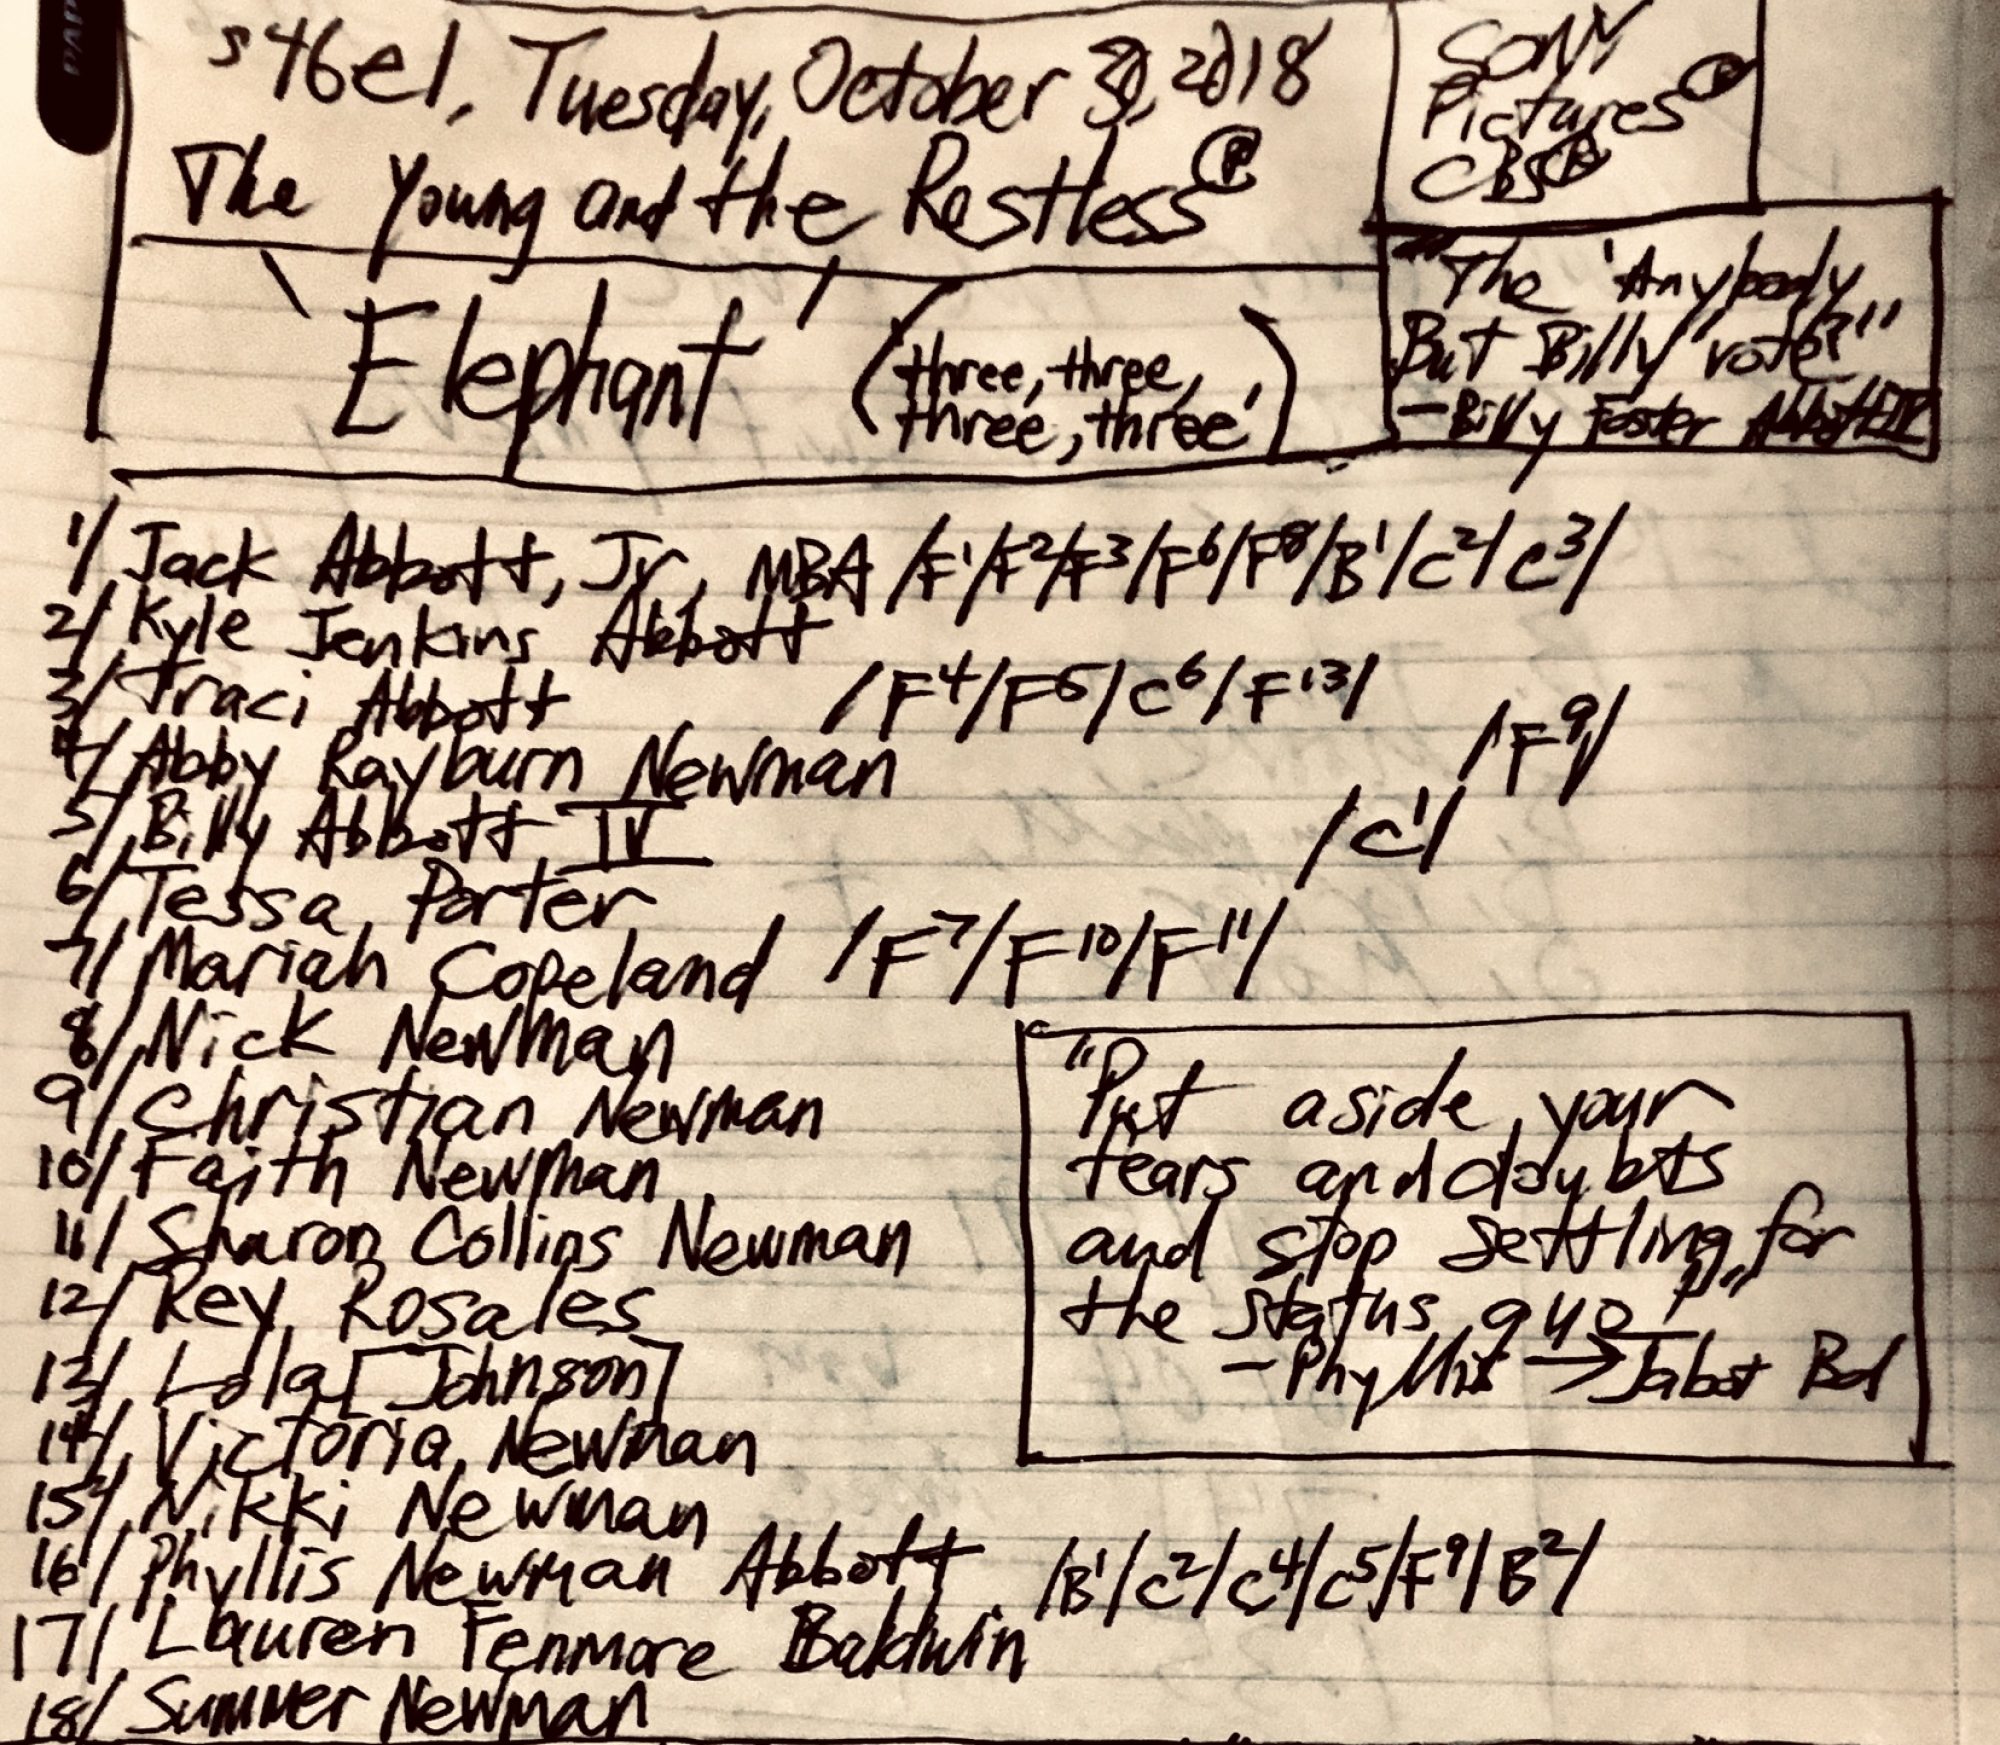 s46e1, Tuesday, October 30, 2018
The Young and the Restless®
Sony
Pictures®
CBS®
'Elephant' (three, three,
three, three')
"The 'Anybody
But Billy' vote?"
-Billy Foster Abbott IV
1/ Jack Abbott, Jr, MBA /F¹/F²/F³/F⁶/F⁸/B¹/C²/C³/
2/ Kyle Jenkins Abbott
3/ Traci Abbott /F⁴/F⁵/C⁶/F¹³/
4/ Abby Rayburn Newman /F⁹/
5/ Billy Abbott IV /C¹/
6/ Tessa Porter
7/ Mariah Copeland /F⁷/F¹⁰/F¹¹/
8/ Nick Newman
9/ Christian Newman
10/ Faith Newman
11/ Sharon Collins Newman
12/ Rey Rosales
13/ Lola [Johnson]
14/ Victoria Newman
15/ Nikki Newman
16/ Phyllis Newman Abbott /B¹/C²/C⁴/C⁵/F⁹/B²/
17/ Lauren Fenmore Baldwin
18/ Summer Newman
"Put aside your
fears and doubts
and stop settling for
the status quo!"
-Phyllis → Jabot Bod